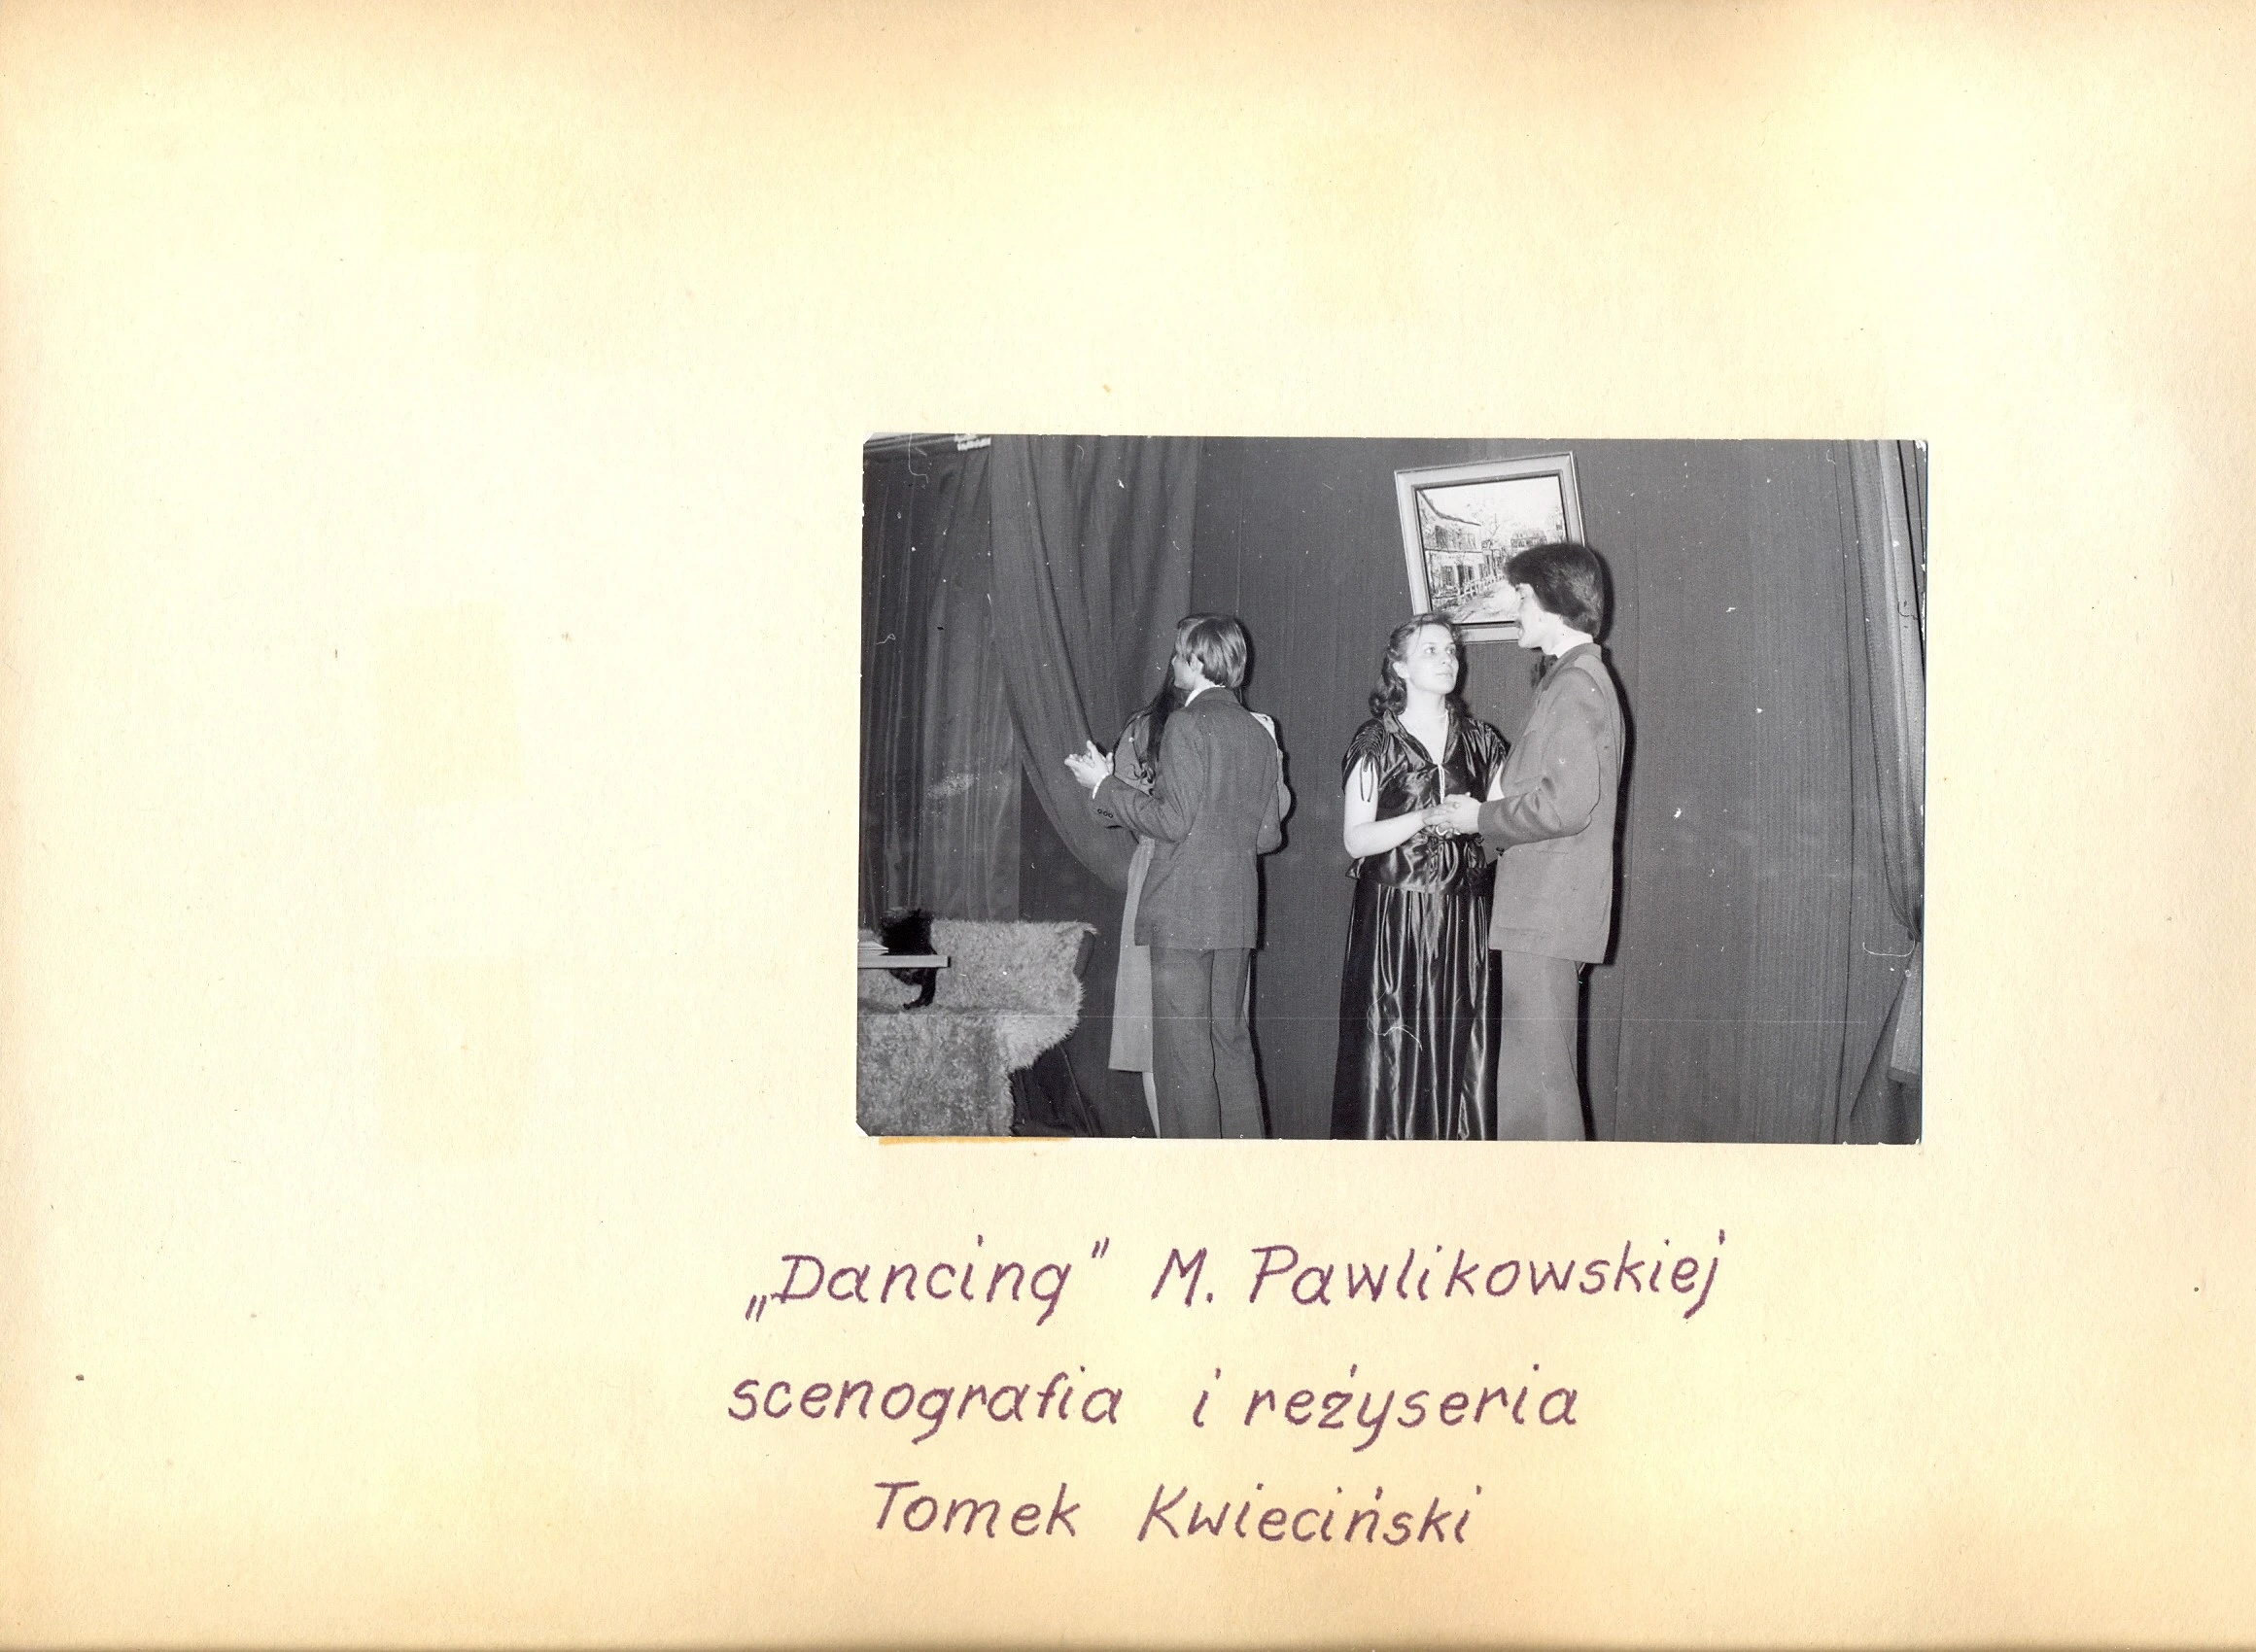 „Dancing" M. Pawlikowskiej
scenografia i reżyseria
Tomek Kwieciński